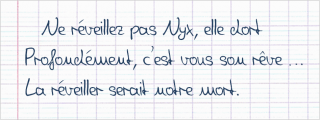 Ne réveillez pas Nyx, elle dort
Profondément, c'est vous son rêve ...
La réveiller serait notre mort.